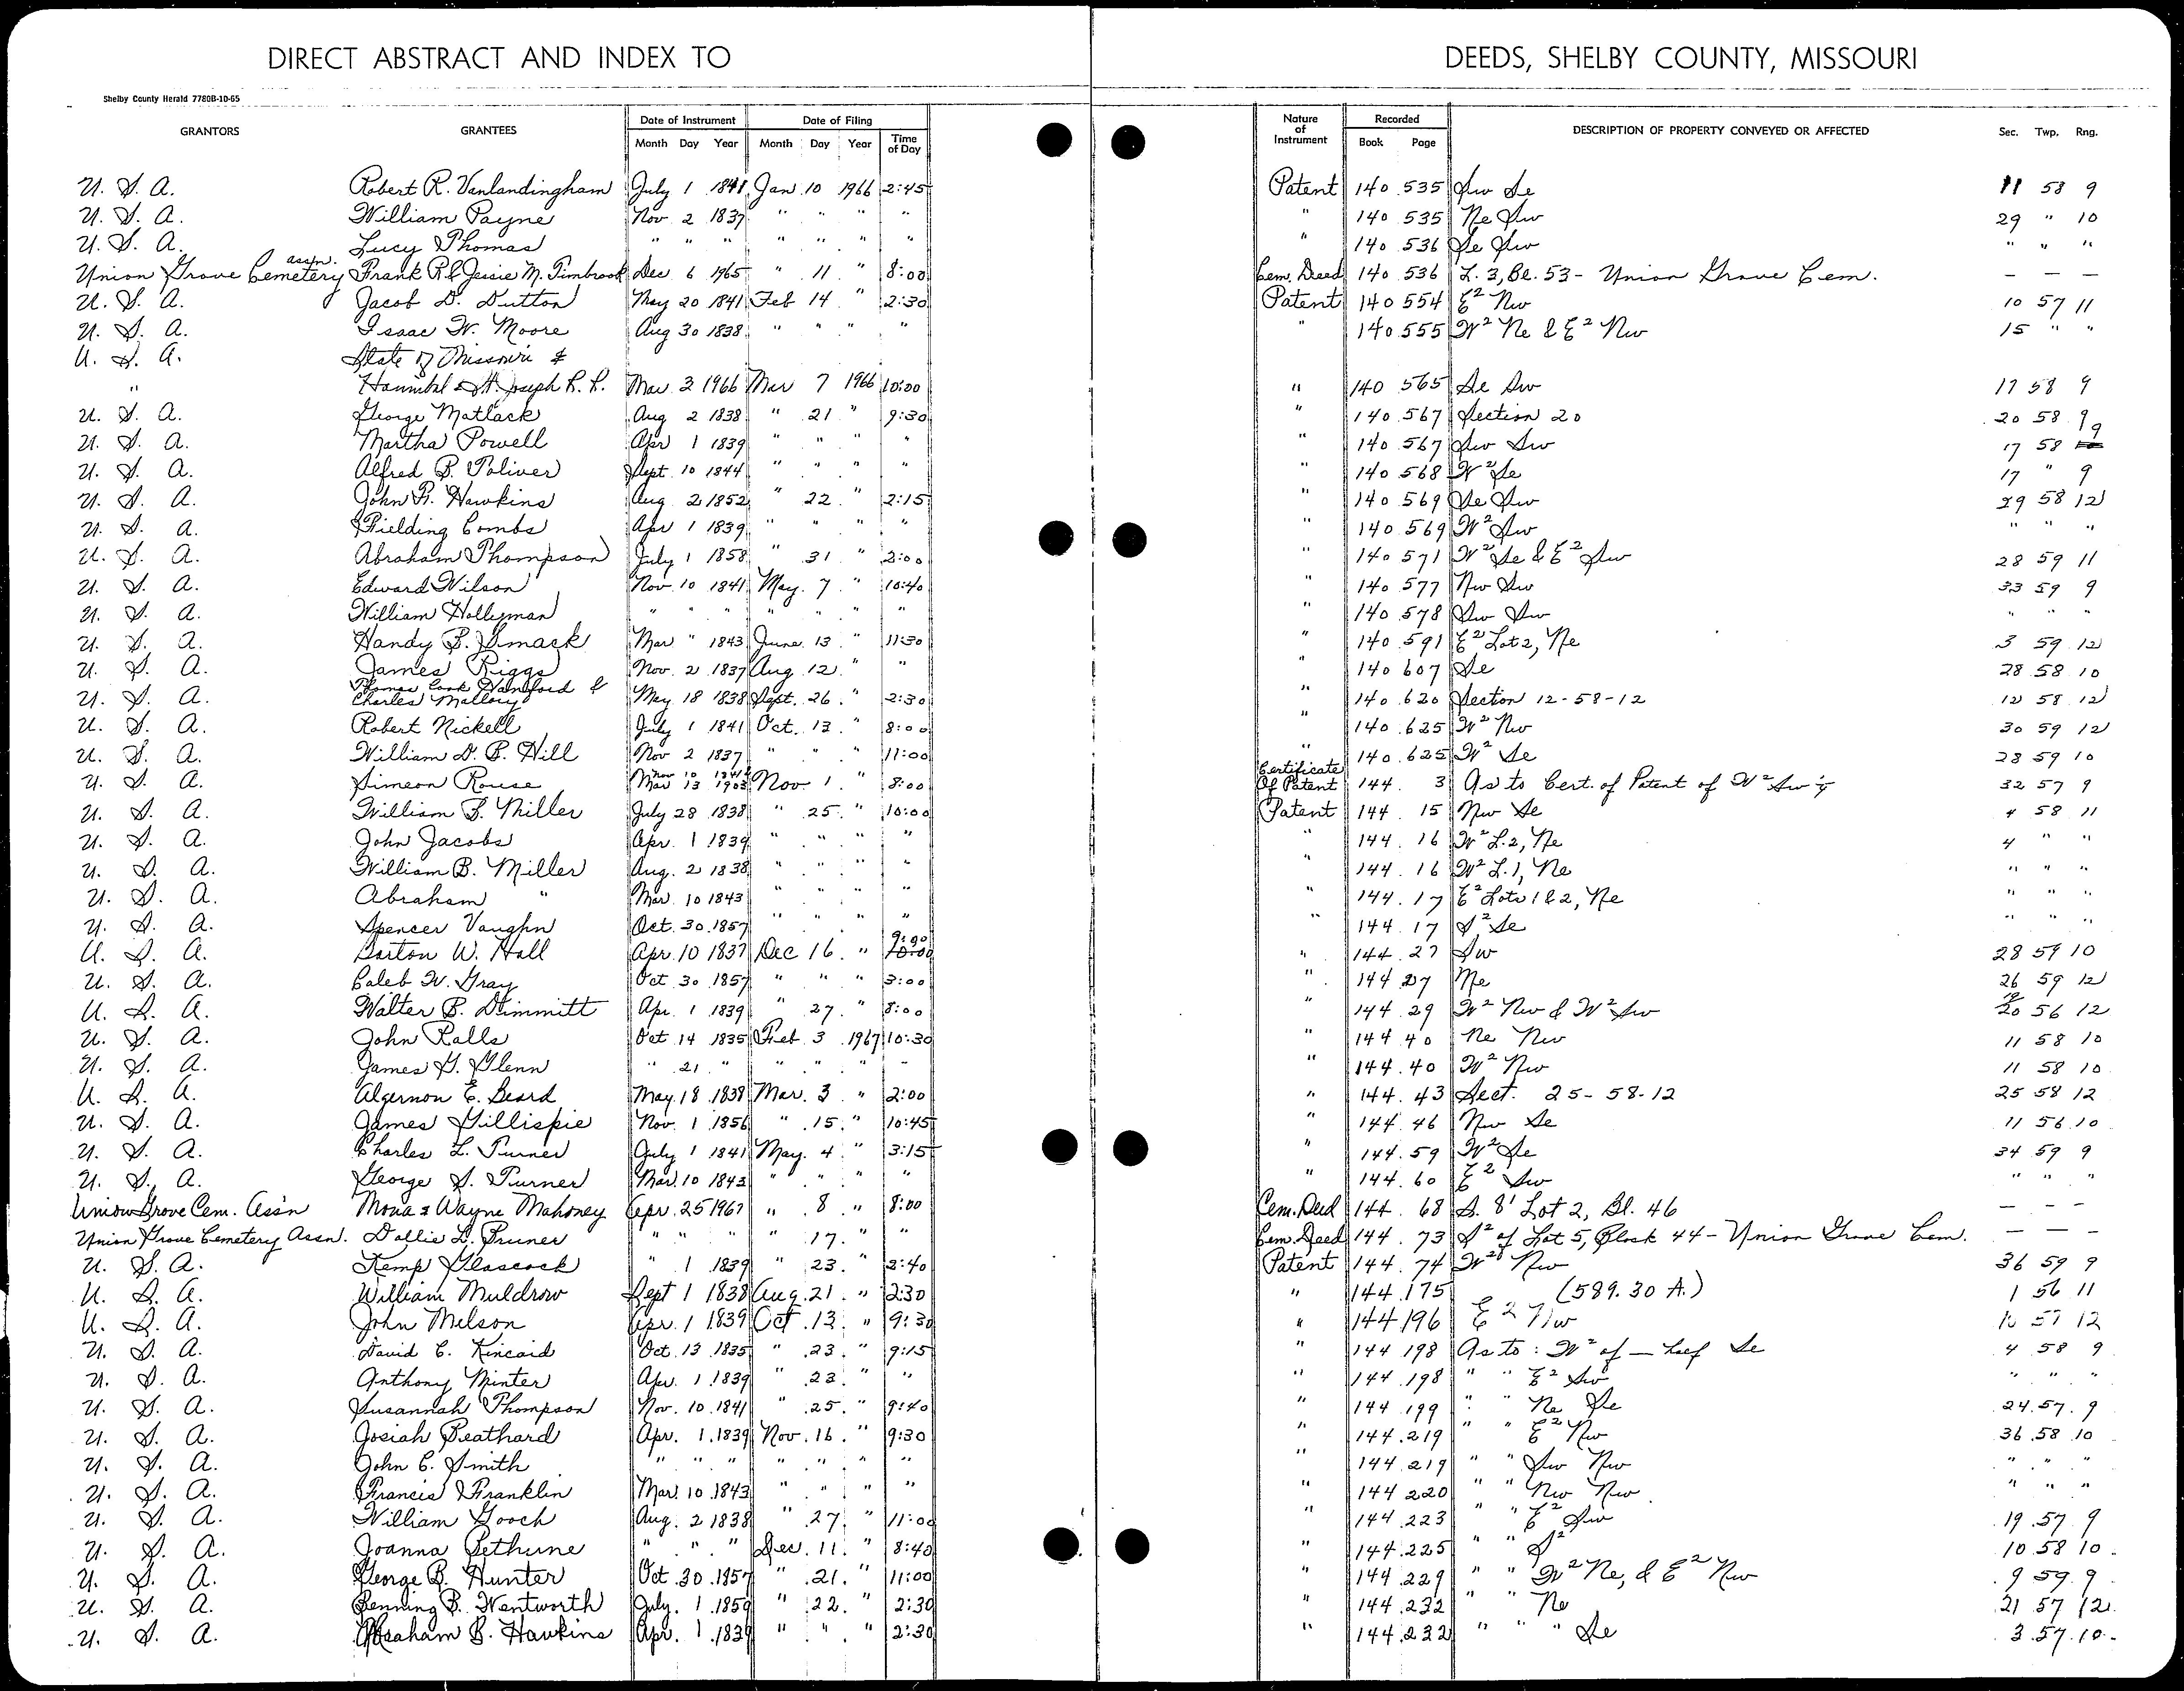 DIRECT ABSTRACT AND INDEX TO DEEDS, SHELBY COUNTY, MISSOURI
Shelby County Herald 7780B-10-65
GRANTORS GRANTEES Date of Instrument Date of Filing Nature of Instrument Recorded DESCRIPTION OF PROPERTY CONVEYED OR AFFECTED Sec. Twp. Rng.
Month Day Year Month Day Year Time of Day Book Page
U. S. A. Robert R. Vanlandingham July 1 1841 Jan 10 1966 2:45 Patent 140 535 Sw Se 11 58 9
U. S. A. William Payne Nov 2 1837 " " " " " 140 535 Ne Sw 29 " 10
U. S. A. Lucy Thomas " " " " " " " " 140 536 Se Sw " " "
Union Grove Cemetery assn. Frank R & Jessie M. Timbrook Dec 6 1965 " 11 " 8:00 Cem. Deed 140 536 L. 3, Bl. 53 - Union Grove Cem. — — —
U. S. A. Jacob D. Dutton May 20 1841 Feb 14 " 2:30 Patent 140 554 E² Nw 10 57 11
U. S. A. Isaac W. Moore Aug 30 1838 " " " " " 140 555 W² Ne & E² Nw 15 " "
U. S. A. State of Missouri &
" Hannibal & St. Joseph R. R. Mar 3 1966 Mar 7 1966 10:00 " 140 565 Se Sw 17 58 9
U. S. A. George Matlack Aug 2 1838 " 21 " 9:30 " 140 567 Section 20 20 58 9
U. S. A. Martha Powell Apr 1 1839 " " " " " 140 567 Sw Sw 17 58 9
U. S. A. Alfred B. Toliver Sept. 10 1844 " " " " " 140 568 W² Se 17 " 9
U. S. A. John R. Hawkins Aug 2 1852 " 22 " 2:15 " 140 569 Se Sw 29 58 12
U. S. A. Fielding Combs Apr 1 1839 " " " " " 140 569 W² Sw " " "
U. S. A. Abraham Thompson July 1 1858 " 31 " 2:00 " 140 571 W² Se & E² Sw 28 59 11
U. S. A. Edward Wilson Nov 10 1841 May. 7 " 10:40 " 140 577 Nw Sw 33 59 9
U. S. A. William Hollyman " " " " " " " " 140 578 Sw Sw " " "
U. S. A. Handy B. Smack Mar " 1843 June 13 " 11:30 " 140 591 E² Lot 2, Ne 3 59 12
U. S. A. James Riggs Nov. 2 1837 Aug 12 " " " 140 607 Se 28 58 10
U. S. A. Thomas Cook Hanford & Charles Mallory May 18 1838 Sept. 26 " 2:30 " 140 620 Section 12-58-12 12 58 12
U. S. A. Robert Nickell July 1 1841 Oct. 13 " 8:00 " 140 625 W² Nw 30 59 12
U. S. A. William D. B. Hill Nov 2 1837 " " " 11:00 " 140 625 W² Se 28 59 10
U. S. A. Simeon Rouse Nov 10 1841 Mar 13 1903 Nov 1 " 8:00 Certificate Of Patent 144 3 As to Cert. of Patent of W² Sw ¼ 32 57 9
U. S. A. William B. Miller July 28 1838 " 25 " 10:00 Patent 144 15 Nw Se 4 58 11
U. S. A. John Jacobs Apr. 1 1839 " " " " " 144 16 W² L. 2, Ne 4 " "
U. S. A. William B. Miller Aug. 2 1838 " " " " " 144 16 W² L. 1, Ne " " "
U. S. A. Abraham " Mar. 10 1843 " " " " " 144 17 E² Lots 1 & 2, Ne " " "
U. S. A. Spencer Vaughn Oct. 30 1857 " " " " " 144 17 S² Se " " "
U. S. A. Barton W. Hall Apr. 10 1837 Dec 16 " 9:00 10:00 " 144 27 Sw 28 59 10
U. S. A. Caleb W. Gray Oct 30 1857 " " " 3:00 " 144 27 Ne 26 59 12
U. S. A. Walter B. Dimmitt Apr. 1 1839 " 27 " 8:00 " 144 29 W² Nw & W² Sw 20 56 12
U. S. A. John Ralls Oct 14 1835 Feb 3 1967 10:30 " 144 40 Ne Nw 11 58 10
U. S. A. James G. Glenn " 21 " " " " " " 144 40 W² Nw 11 58 10
U. S. A. Algernon E. Beard May 18 1838 Mar. 3 " 2:00 " 144 43 Sect. 25-58-12 25 58 12
U. S. A. James Gillispie Nov. 1 1856 " 15 " 10:45 " 144 46 Nw Se 11 56 10
U. S. A. Charles L. Turner July 1 1841 May. 4 " 3:15 " 144 59 W² Se 34 59 9
U. S. A. George S. Turner Mar. 10 1843 " " " " " 144 60 E² Sw " " "
Union Grove Cem. Ass'n Mona & Wayne Mahoney Apr. 25 1967 " 8 " 8:00 Cem. Deed 144 68 S. 8' Lot 2, Bl. 46 — — —
Union Grove Cemetery Assn. Dollie L. Pruner " " " " 17 " " Cem. Deed 144 73 S² of Lot 5, Block 44 - Union Grove Cem. — — —
U. S. A. Kemp Glascock " 1 1839 " 23 " 2:40 Patent 144 74 W² Nw 36 59 9
U. S. A. William Muldrow Sept 1 1838 Aug. 21 " 2:30 " 144 175 (589.30 A.) 1 56 11
U. S. A. John Melson Apr. 1 1839 Oct. 13 " 9:30 " 144 196 E² Nw 57 12
U. S. A. David C. Kincaid Oct. 13 1835 " 23 " 9:15 " 144 198 As to: W² of — half Se 4 58 9
U. S. A. Anthony Minter Apr. 1 1839 " 23 " " " 144 198 " " E² Sw " " "
U. S. A. Susannah Thompson Nov. 10 1841 " 25 " 9:40 " 144 199 " " Ne Se 24 57 9
U. S. A. Josiah Beathard Apr. 1 1839 Nov. 16 " 9:30 " 144 219 " " E² Nw 36 58 10
U. S. A. John C. Smith " " " " " " " " 144 219 " " Sw Nw " " "
U. S. A. Francis Franklin Mar. 10 1843 " " " " " 144 220 " " Nw Nw " " "
U. S. A. William Gooch Aug. 2 1838 " 27 " 11:00 " 144 223 " " E² Sw 19 57 9
U. S. A. Joanna Bethune " " " Dec. 11 " 8:40 " 144 225 " " S² 10 58 10
U. S. A. George B. Hunter Oct 30 1857 " 21 " 11:00 " 144 229 " " W² Ne, & E² Nw 9 59 9
U. S. A. Benning B. Wentworth July 1 1859 " 22 " 2:30 " 144 232 " " Ne 21 57 12
U. S. A. Abraham B. Hawkins Apr. 1 1839 " " " 2:30 " 144 232 " " " Se 3 57 10